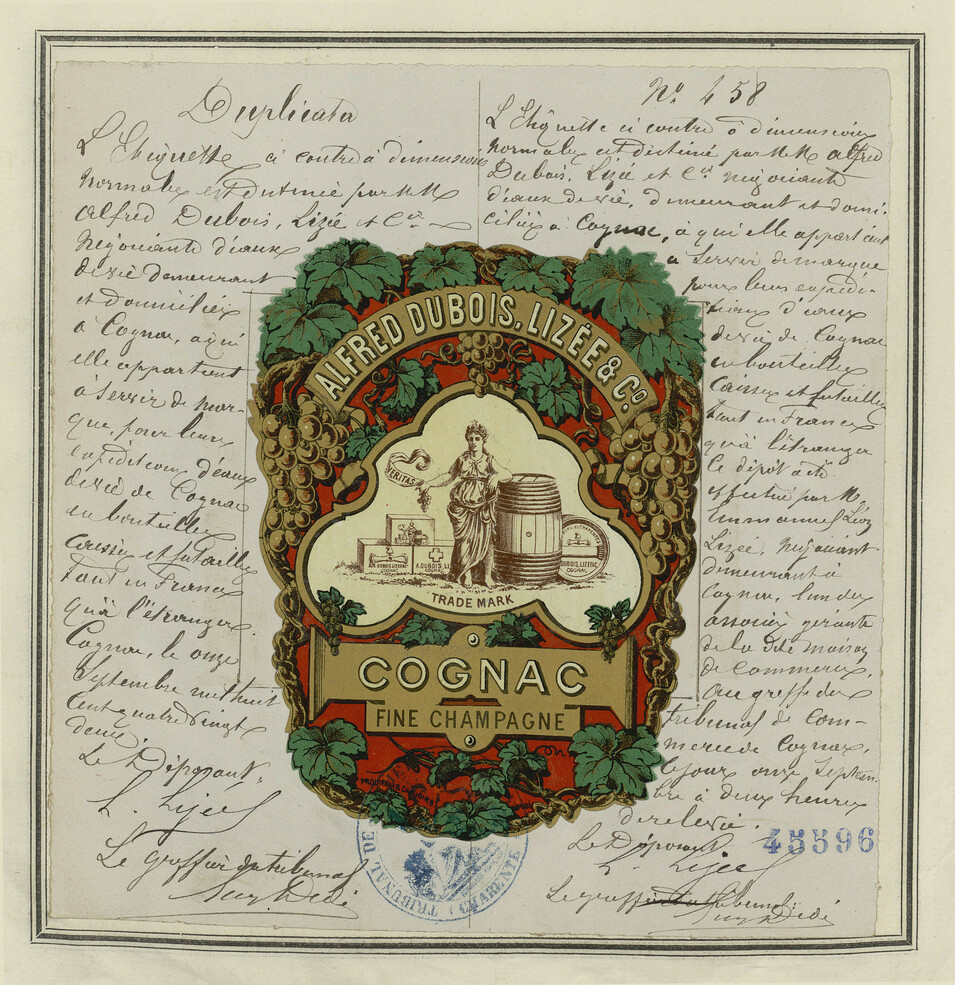 Duplicata
L'Etiquette ci contre à dimensions
normales est destinée par MM
Alfred Dubois, Lizée et Cie
Négociants d'eaux
de vie demeurant
et domiciliés
à Cognac, à qui
elle appartient
à servir de mar-
que, pour leurs
expéditions d'eaux
de vie de Cognac
en bouteilles
caisses et futailles
tant en France
qu'à l'étranger.
Cognac, le onze
Septembre mil huit
cent quatre vingt
deux.
Le Déposant,
L. Lizée
Le greffier du tribunal
No 458
L'Etiquette ci contre à dimensions
normales est destinée par MM Alfred
Dubois, Lizée et Cie Négociants
d'eaux de vie, demeurant et domi-
ciliés à Cognac, à qui elle appartient
à servir de marque
pour leurs expédi-
tions d'eaux
de vie de Cognac
en bouteilles
caisses et futailles
tant en France
qu'à l'étranger
Ce dépôt a été
effectué par M.
Emmanuel Léon
Lizée, négociant
demeurant à
Cognac, l'un des
associés gérants
de la dite maison
de commerce,
au greffe du
tribunal de com-
merce de Cognac,
ce jour onze Septem-
bre à deux heures
de relevée.
Le Déposant
L. Lizée
Le greffier
45596
ALFRED DUBOIS, LIZÉE & Co.
VERITAS
A. DUBOIS LI
COGNAC
DUBOIS, LIZÉE & C
COGNAC
TRADE MARK
COGNAC
FINE CHAMPAGNE
TRIBUNAL DE
(CHARENTE